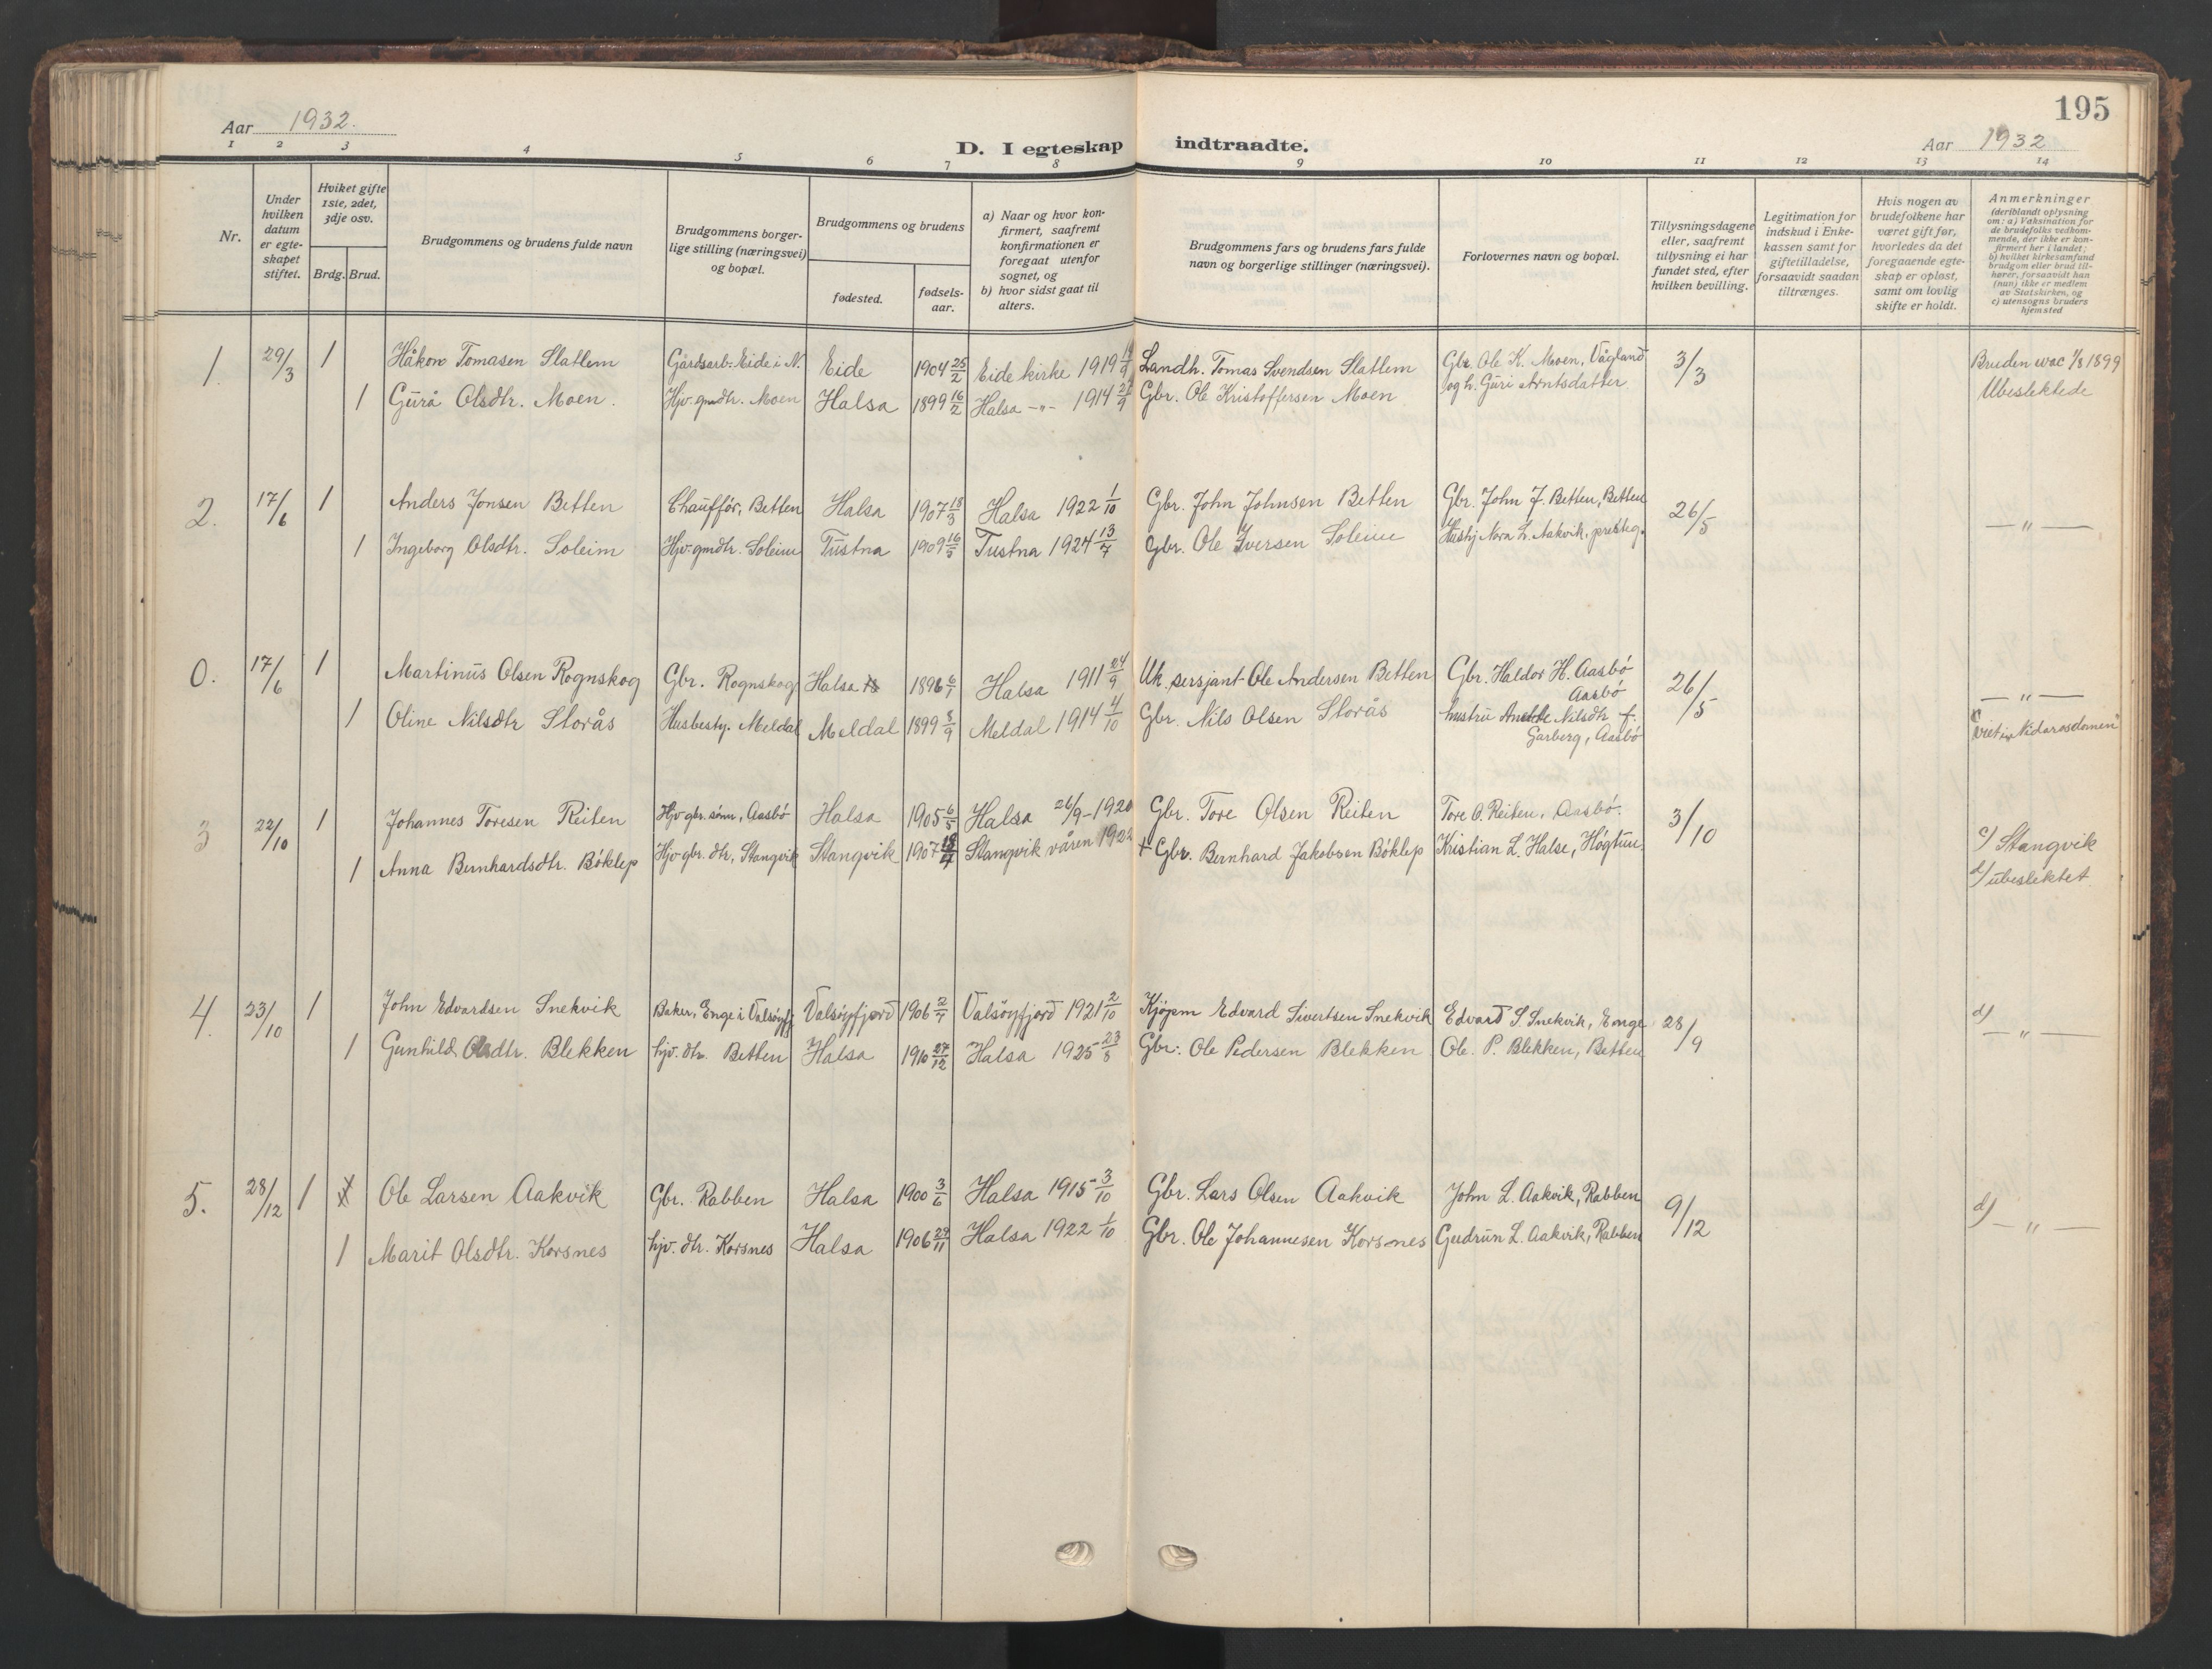 195
Aar 1932.
D. I egteskap indtraadte.
Aar 1932
1 2 3 4 5 6 7 8 9 10 11 12 13 14
Nr.
Under hvilken datum er egte-skapet stiftet.
Hviket gifte 1ste, 2det, 3dje osv.
Brdg. Brud.
Brudgommens og brudens fulde navn
Brudgommens borger-lige stilling (næringsvei) og bopæl.
Brudgommens og brudens
fødested.
fødsels-aar.
a) Naar og hvor kon-firmert, saafremt konfirmationen er foregaat utenfor sognet, og
b) hvor sidst gaat til alters.
Brudgommens fars og brudens fars fulde navn og borgerlige stillinger (næringsvei).
Forlovernes navn og bopæl.
Tillysningsdagene eller, saafremt tillysning ei har fundet sted, efter hvilken bevilling.
Legitimation for indskud i Enke-kassen samt for giftetilladelse, forsaavidt saadan tiltrænges.
Hvis nogen av brudefolkene har været gift før, hvorledes da det foregaaende egte-skap er opløst, samt om lovlig skifte er holdt.
Anmerkninger (deriblandt oplysning om: a) Vaksination for de brudefolks vedkom-mende, der ikke er kon-firmert her i landet; b) hvilket kirkesamfund brudgom eller brud til-hører, forsaavidt han (hun) ikke er medlem av Statskirken, og c) utensogns bruders hjemsted
1. 29/3 1 Håkon Tomasen Slatlem Gårdsarb. Eide i N. Eide 1904 25/2 Eide kirke 1919 Landh. Tomas Svendsen Slatlem Gbr. Ole K. Moen, Vågland 3/3 Bruden vac 1/8 1899
1 Gurå Olsdtr. Moen. Hjv. gmdtr. Moen Halsa 1899 16/2 Halsa -"- 1914 Gbr. Ole Kristoffersen Moen og h. Guri Arntsdatter Ubeslektede
2. 17/6 1 Anders Jonsen Betten Chauffør, Betten Halsa 1907 18/3 Halsa 1922 1/10 Gbr. John Johnsen Betten Gbr. John J. Betten, Betten 26/5 — " —
1 Ingeborg Olsdtr. Soleim Hjv. gmdtr. Soleim Tustna 1909 Tustna 1924 13/7 Gbr. Ole Iversen Soleim Husbstj Nora L. Aakvik, presteg.
0. 17/6 1 Martinus Olsen Rognskog Gbr. Rognskog Halsa 1896 6/1 Halsa 1911 24/9 Uk. sersjant Ole Andersen Betten Gbr. Haldor H. Aasbø Aasbø 26/5 — " —
1 Oline Nilsdtr Storås Husbesty. Meldal Meldal 1899 8/9 Meldal 1914 4/10 Gbr. Nils Olsen Storås hustru Nilsdtr f. Garberg, Aasbø Viet i Nidarosdomen
3 22/10 1 Johannes Toresen Reiten Hjv. gbr. sønn, Aasbø Halsa 1905 6/5 Halsa 26/9-1920 Gbr. Tore Olsen Reiten Tore O. Reiten, Aasbø. 3/10 c/ Stangvik
1 Anna Bernhardsdtr. Bøklep Hjv. gbr. dtr, Stangvik Stangvik 1907 Stangvik våren 1922 + Gbr. Bernhard Jakobsen Bøklep Kristian L. Halse, Høgtun d/ ubeslektet
4. 23/10 1 John Edvardsen Snekvik Baker, Enge i Valsøyfj Valsøyfjord 1906 2/7 Valsøyfjord 1921 2/10 Kjøpm Edvard Sivertsen Snekvik Edvard S. Snekvik, Enge 28/9 d/ — " —
1 Gunhild Olsdtr. Blekken hjv. dtr. Betten Halsa 1910 27/12 Halsa 1925 23/8 Gbr. Ole Pedersen Blekken Ole. P. Blekken, Betten
5. 28/12 1 Ole Larsen Aakvik Gbr. Rabben Halsa 1900 3/6 Halsa 1915 3/10 Gbr. Lars Olsen Aakvik John L. Aakvik, Rabben 9/12 d/ — " —
1 Marit Olsdtr. Korsnes hjv. dtr. Korsnes Halsa 1906 29/11 Halsa 1922 1/10 Gbr. Ole Johannesen Korsnes Gudrun L. Aakvik, Rabben